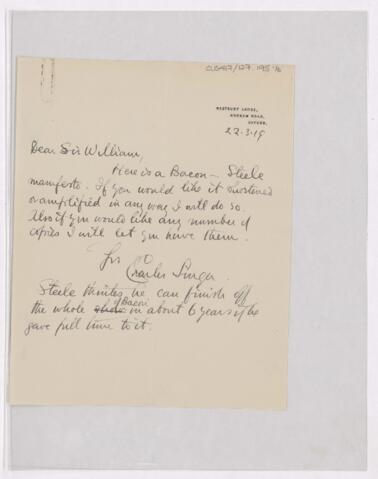 CUS417/127.195/6
WESTBURY LODGE,
NORHAM ROAD,
OXFORD.
22-3-19
Dear Sir William,
Here is a Bacon - Steele
manifesto. If you would like it shortened
or amplified in any way I will do so.
Also if you would like any number of
copies I will let you have them.
Yrs
Charles Singer.
Steele thinks he can finish off
the whole of Bacon in about 6 years if he
gave full time to it.